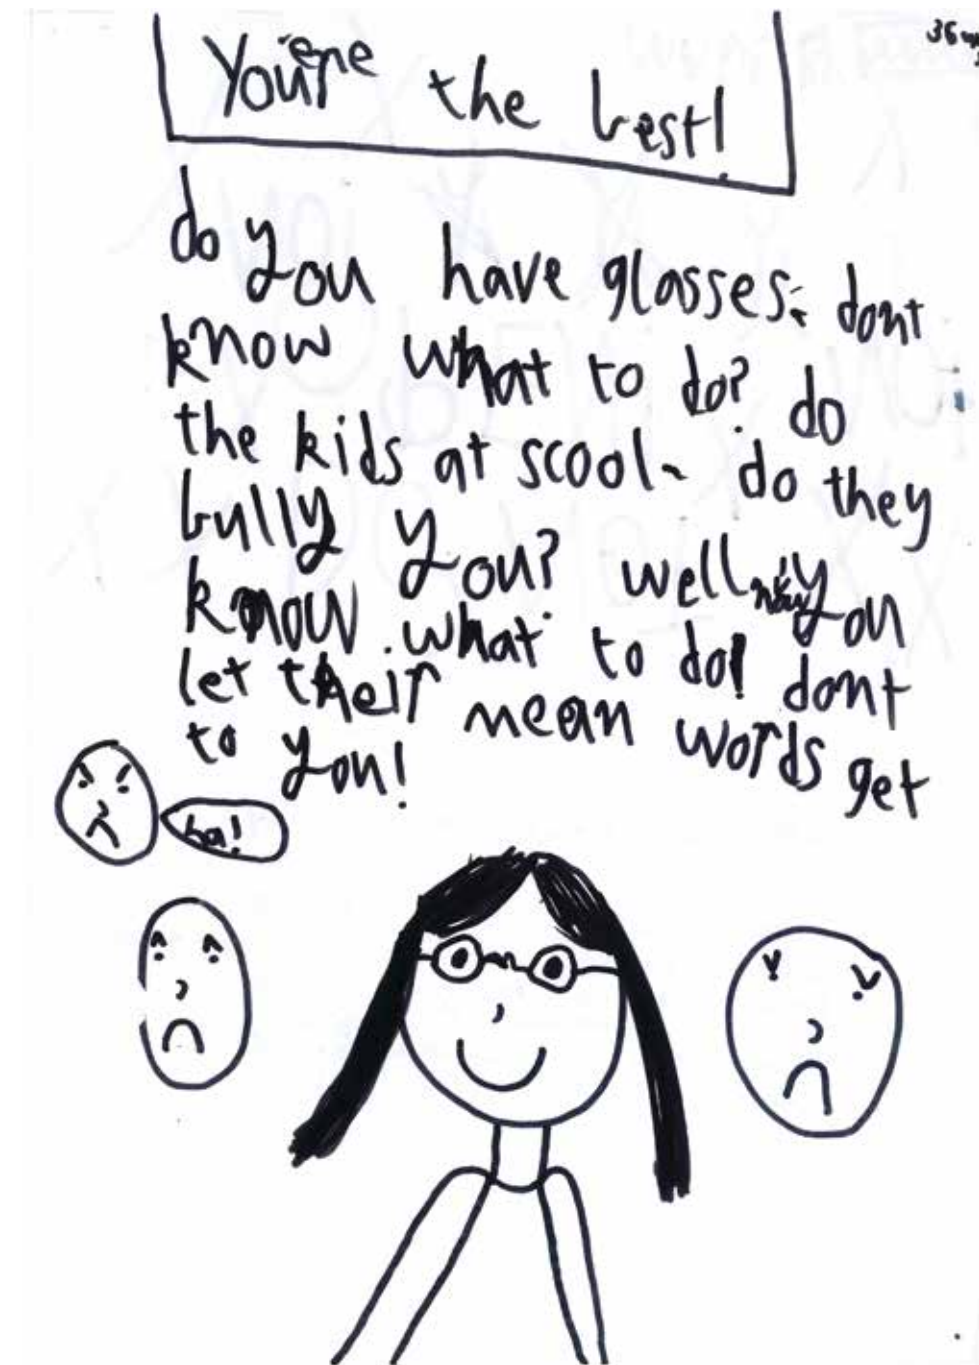 You're the best!
do you have glasses? dont
know what to do? do
the kids at scool - do they
bully you? well now you
know what to do! dont
let their mean words get
to you!
ha!